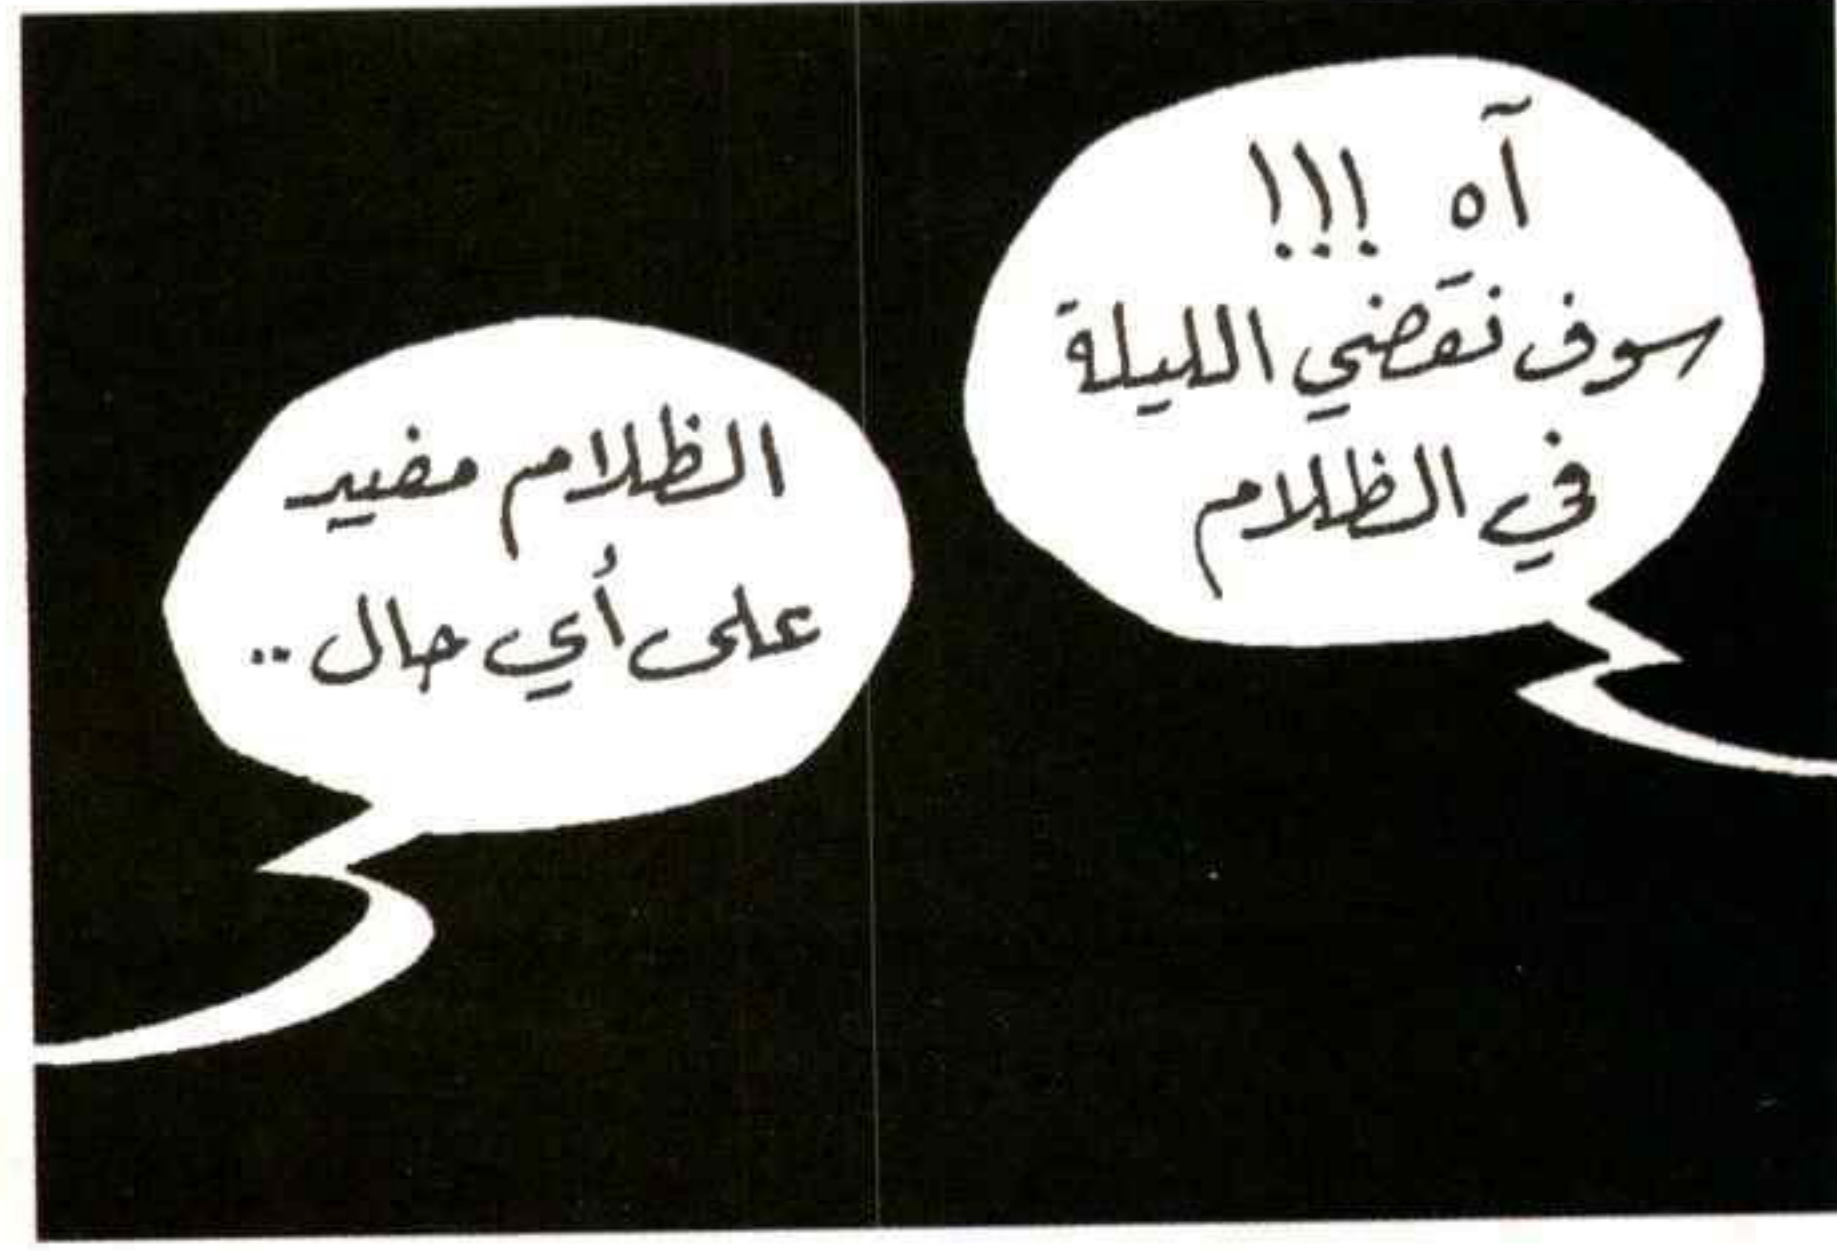 آه !!!
سوف نقضي الليلة
في الظلام
الظلام مفيد
على أي حال..